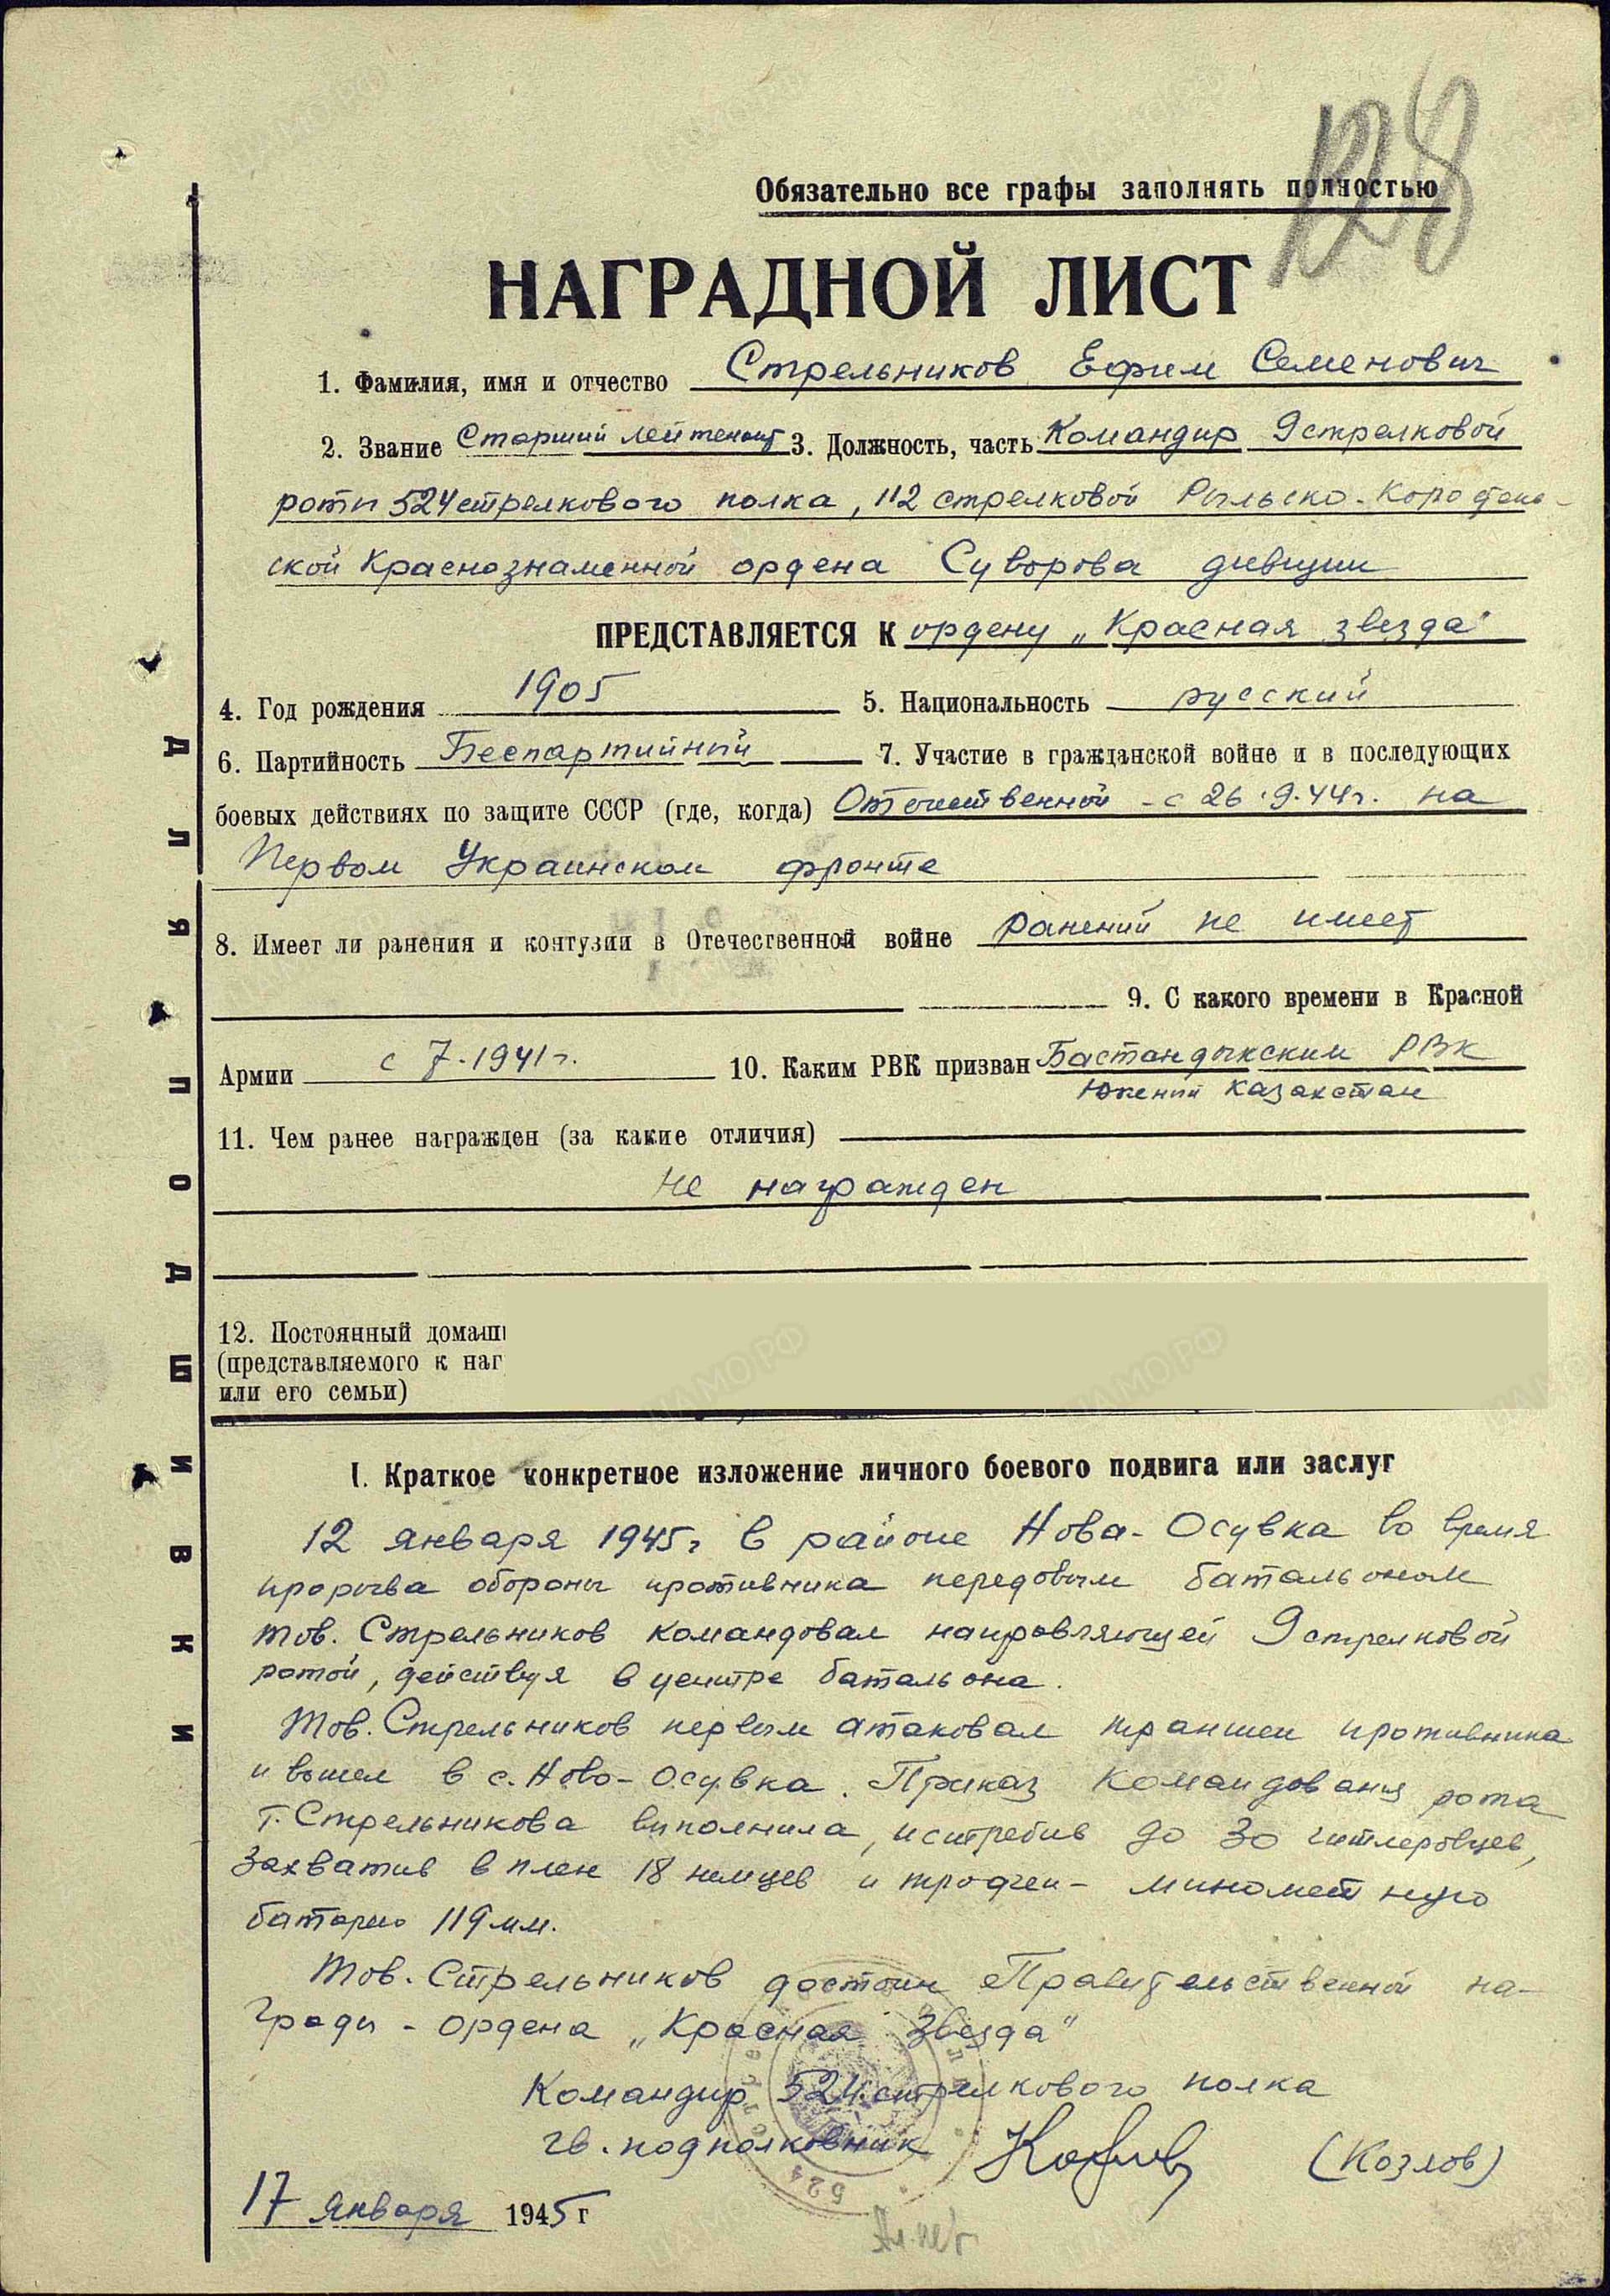 128
Обязательно все графы заполнять полностью
НАГРАДНОЙ ЛИСТ
1. Фамилия, имя и отчество Стрельников Ефим Семенович
2. Звание Старший лейтенант 3. Должность, часть Командир 9 стрелковой
роты 524 стрелкового полка, 112 стрелковой Рыльско-Коростень-
ской Краснознаменной ордена Суворова дивизии
ПРЕДСТАВЛЯЕТСЯ К ордену „Красная звезда"
4. Год рождения 1905 5. Национальность русский
6. Партийность Беспартийный 7. Участие в гражданской войне и в последующих
боевых действиях по защите СССР (где, когда) Отечественной - с 26.9.44г. на
Первом Украинском фронте
8. Имеет ли ранения и контузии в Отечественной войне ранений не имеет
9. С какого времени в Красной
Армии с 7-1941г. 10. Каким РВК призван Бастандыкским РВК
Южный Казахстан
11. Чем ранее награжден (за какие отличия)
не награжден
12. Постоянный домаш
(представляемого к наг
или его семьи)
I. Краткое конкретное изложение личного боевого подвига или заслуг
12 января 1945г в районе Нова-Осувка во время
прорыва обороны противника передовым батальоном
тов. Стрельников командовал направляющей 9 стрелковой
ротой, действуя в центре батальона.
Тов. Стрельников первым атаковал траншеи противника
и вышел в с. Ново-Осувка. Приказ командования рота
т. Стрельникова выполнила, истребив до 30 гитлеровцев,
захватив в плен 18 немцев и трофеи - минометную
батарею 119 мм.
Тов. Стрельников достоин Правительственной на-
грады - ордена „Красная Звезда"
Командир 524 стрелкового полка
гв. подполковник (Козлов)
17 января 1945 г
ДЛЯ ПОДШИВКИ
524
ЦАМО.РФ